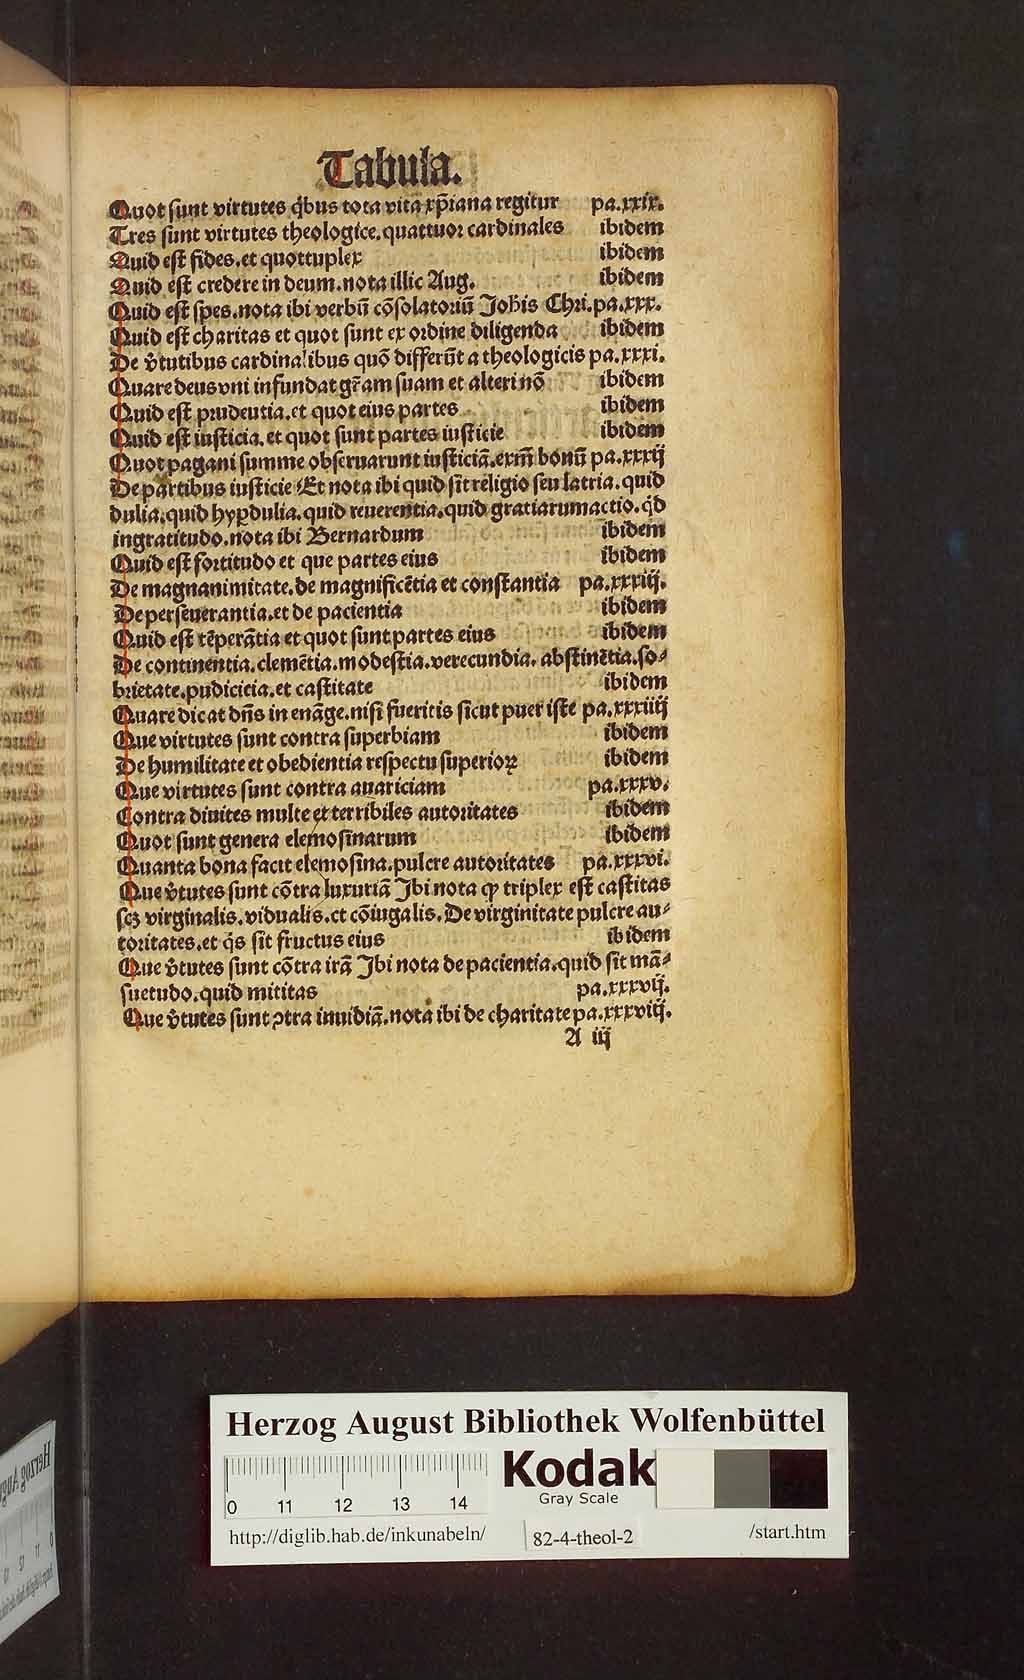 Tabula.
Quot sunt virtutes q̄bus tota vita xp̄iana regitur pa.xxix.
Tres sunt virtutes theologice.quattuor cardinales ibidem
Quid est fides.et quottuplex ibidem
Quid est credere in deum.nota illic Aug. ibidem
Quid est spes.nota ibi verbū cōsolatoriū Joh̄is Chri.pa.xxx.
Quid est charitas et quot sunt ex ordine diligenda ibidem
De v̄tutibus cardinalibus quō differūt a theologicis pa.xxxi.
Quare deus vni infundat gr̄am suam et alteri nō ibidem
Quid est prudentia.et quot eius partes ibidem
Quid est iusticia.et quot sunt partes iusticie ibidem
Quot pagani summe obseruarunt iusticiā.exm̄ bonū pa.xxxij
De partibus iusticie Et nota ibi quid sit religio seu latria.quid
dulia.quid hyꝑdulia.quid reuerentia.quid gratiarumactio.q̇d
ingratitudo.nota ibi Bernardum ibidem
Quid est fortitudo et que partes eius ibidem
De magnanimitate.de magnificētia et constantia pa.xxxiij.
De perseuerantia.et de pacientia ibidem
Quid est tēperātia et quot sunt partes eius ibidem
De continentia.clemētia.modestia.verecundia.abstinētia.so⸗
brietate.pudicicia.et castitate ibidem
Quare dicat dn̄s in euāge.nisi fueritis sicut puer iste pa.xxxiiij
Que virtutes sunt contra superbiam ibidem
De humilitate et obedientia respectu superioꝝ ibidem
Que virtutes sunt contra auariciam pa.xxxv.
Contra diuites multe et terribiles autoritates ibidem
Quot sunt genera elemosinarum ibidem
Quanta bona facit elemosina.pulcre autoritates pa.xxxvi.
Que v̄tutes sunt cōtra luxuriā Ibi nota ꝙ triplex est castitas
scꝫ virginalis.vidualis.et cōiugalis.De virginitate pulcre au⸗
toritates.et q̇s sit fructus eius ibidem
Que v̄tutes sunt cōtra irā Ibi nota de pacientia.quid sit mā⸗
suetudo.quid mititas pa.xxxvij.
Que v̄tutes sunt ꝯtra inuidiā.nota ibi de charitate pa.xxxviij.
A iij
Herzog August Bibliothek Wolfenbüttel
0 11 12 13 14
Kodak
Gray Scale
http://diglib.hab.de/inkunabeln/ 82-4-theol-2 /start.htm